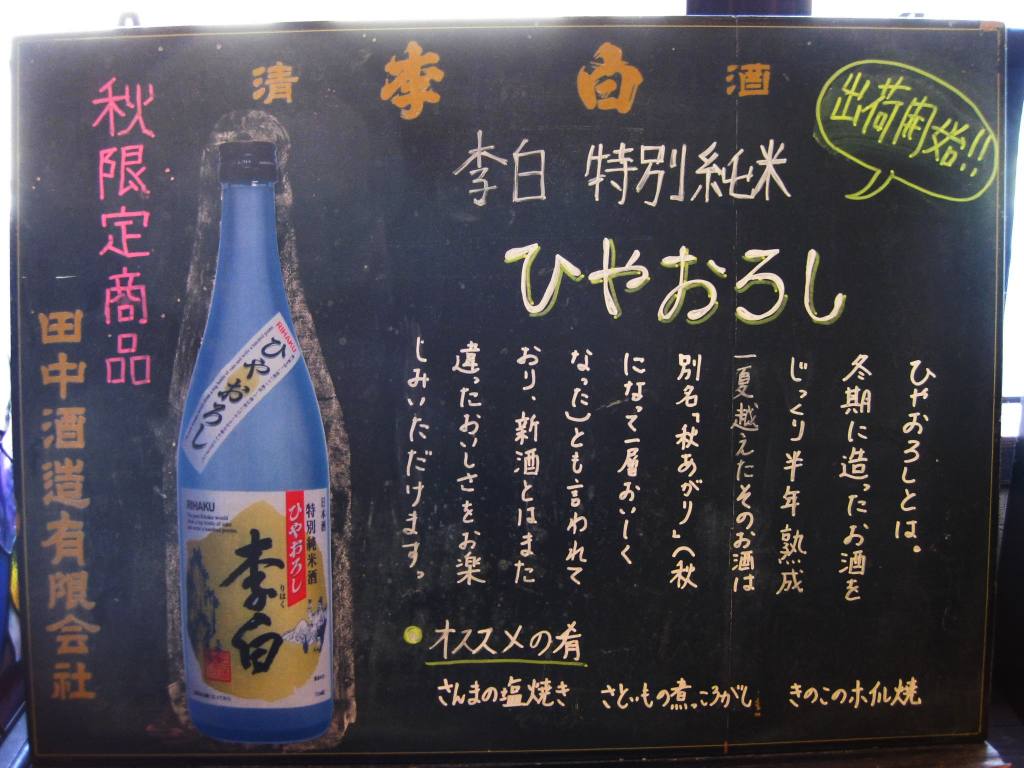 清 李 白 酒
出荷開始!!
秋限定商品
田中酒造有限会社
李白 特別純米
ひやおろし
ひやおろしとは。
冬期に造ったお酒を
じっくり半年熟成
一夏越えたそのお酒は
別名「秋あがり」へ秋
になって一層おいしく
なった」とも言われて
おり、新酒とはまた
違ったおいしさをお楽
しみいただけます。
オススメの肴
さんまの塩焼き さといもの煮っころがし きのこのホイル焼
RIHAKU
ひやおろし
RIHAKU
日本酒
特別純米酒
ひやおろし
李白
りはく